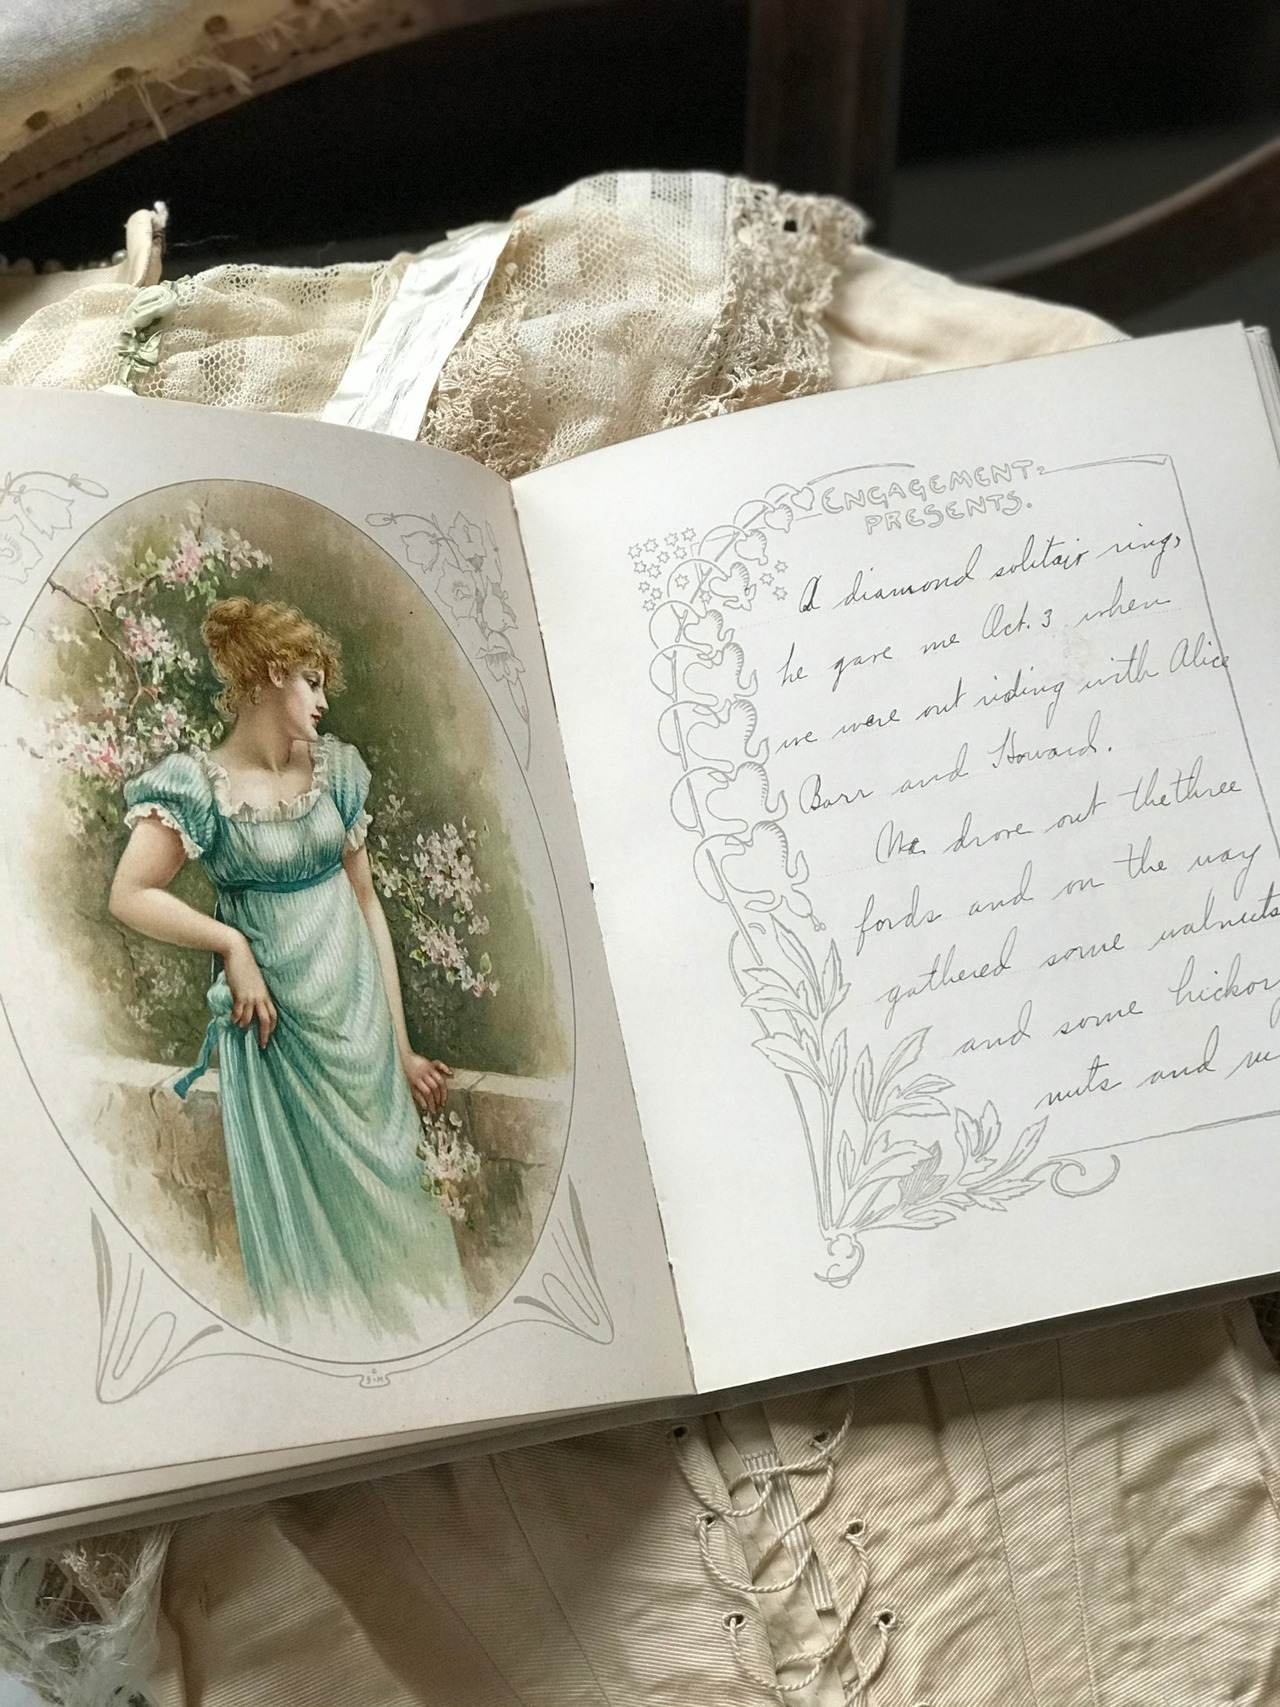 ENGAGEMENT
PRESENTS.
A diamond solitair ring,
he gave me Oct. 3 when
we were out riding with Alice
Barr and Howard.
We drove out the three
fords and on the way
gathered some walnuts
and some hickor
nuts and